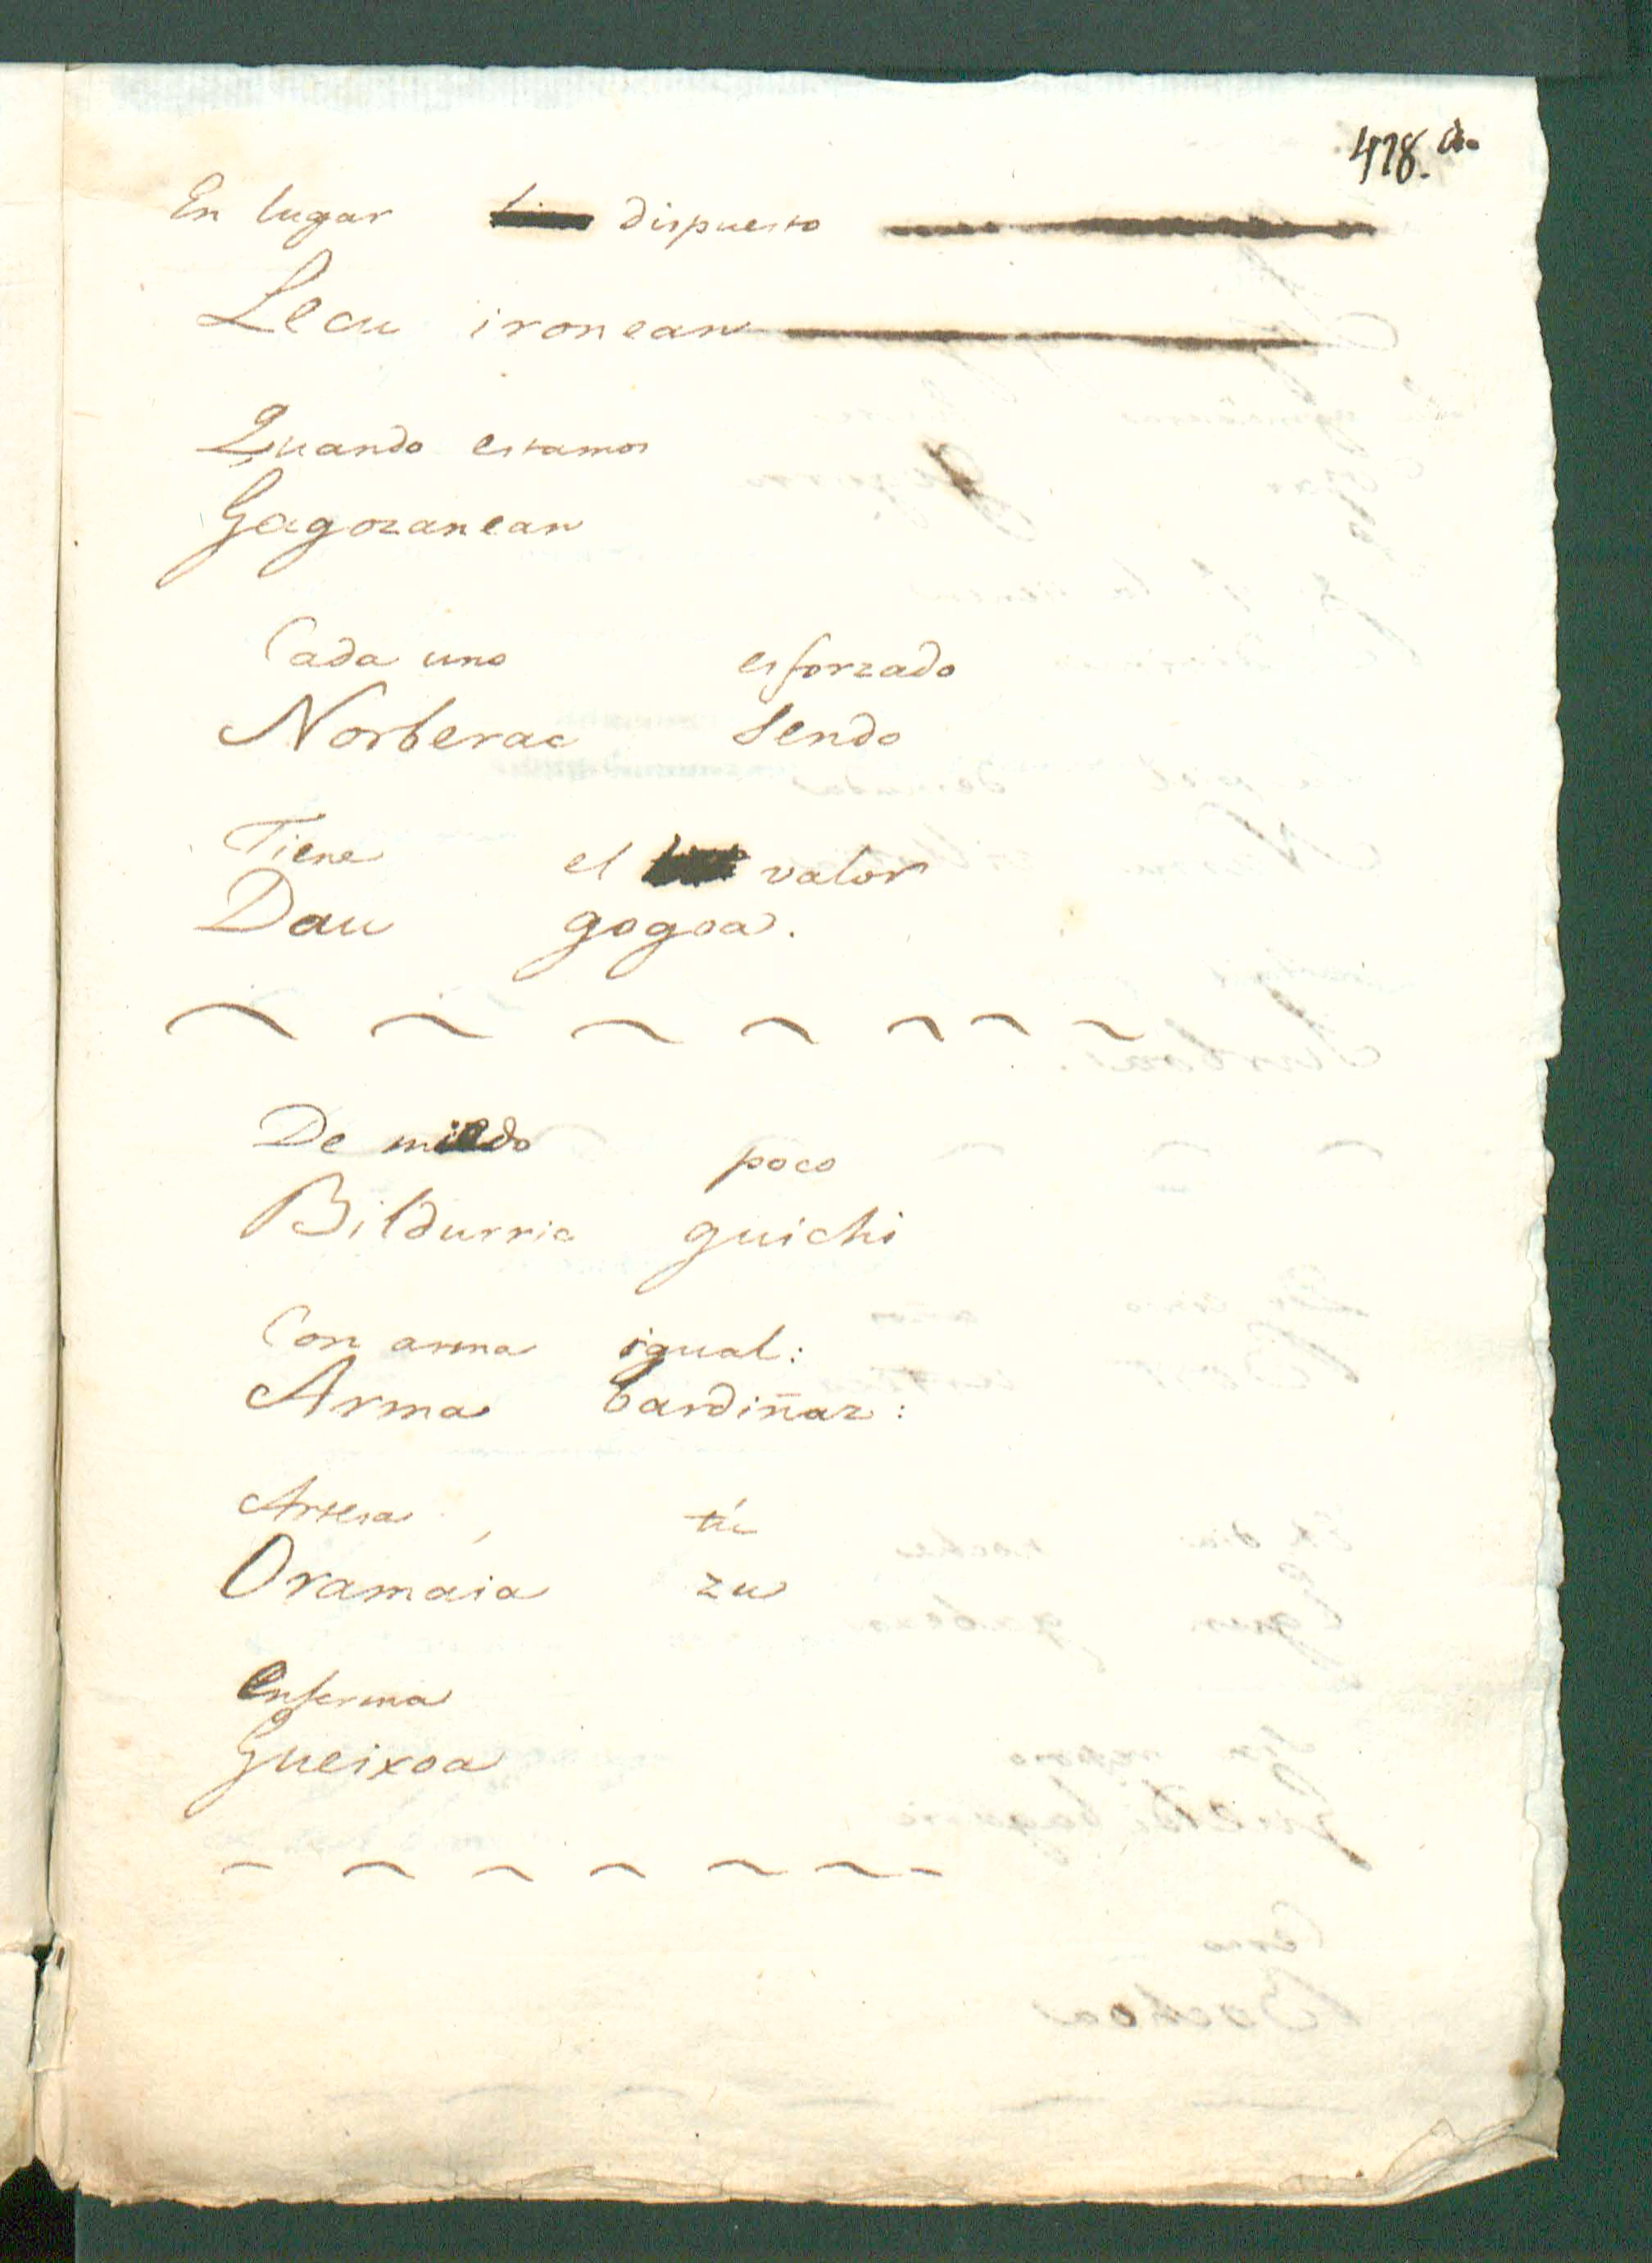 478.
En lugar dispuesto
Lecu ironean
Quando estamos
Gagozanean
Cada uno esforzado
Norberac sendo
Tiene el valor
Dau gogoa.
De miedo poco
Bildurric guichi
Con arma igual:
Arma bardiñaz:
Artesa, tú
Oramaia zu
enferma
Gueixoa